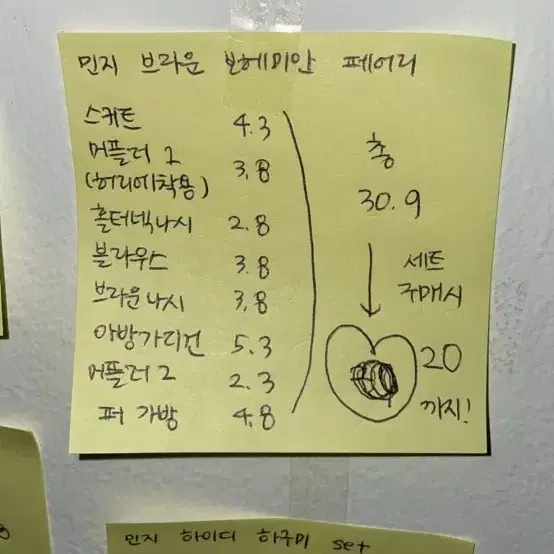 민지 브라운 보헤미안 페어리
스커트 4.3
머플러 2 3.8
(허리에착용)
홀터넥나시 2.8
블라우스 3.8
브라운나시 3.8
아방가디건 5.3
머플러 2 2.3
퍼 가방 4.8
총
30.9
세트
구매시
20
까지!
민지 하이디 하구미 set